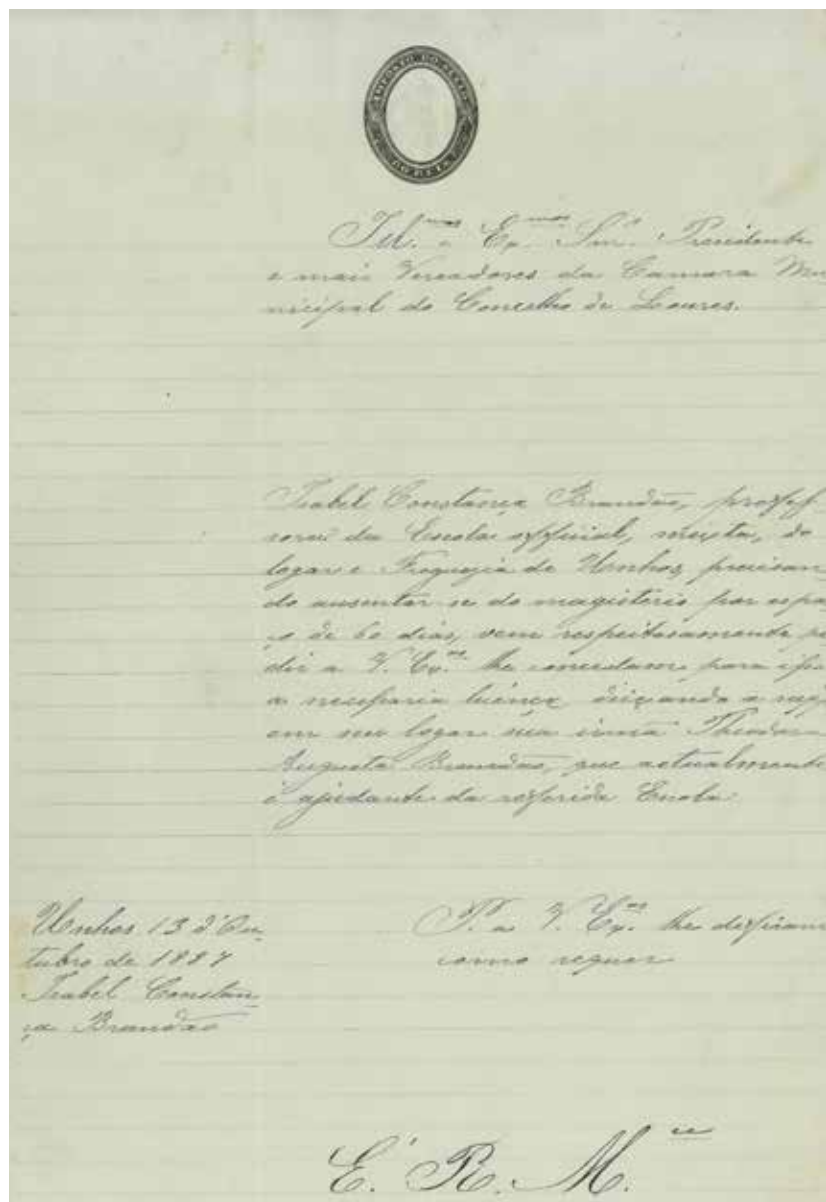 IMPOSTO DO SELLO
Ill.mos e Ex.mos Snr.s Presidente
e mais Vereadores da Camara Mu
nicipal do Concelho de Loures.
Isabel Constança Brandão, profes
sora da Escola official, mixta, do
logar e Freguezia de Unhos, precisan
do ausentar-se do magisterio por espa
ço de 60 dias, vem respeitosamente pe
dir a V. Ex.as lhe concedam para isso
a necessaria licença, deixando a reger
em seu logar sua irmã Theodora
Augusta Brandão, que actualmente
é ajudante da referida Escola
Unhos 13 d'Ou
tubro de 1887
Isabel Constan
ça Brandão
P. a V. Ex.as lhe defiram
como requer
E. R. M.ce